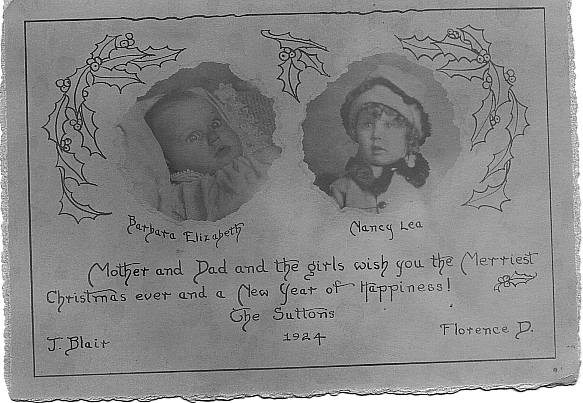 Barbara Elizabeth
Nancy Lea
Mother and Dad and the girls wish you the Merriest
Christmas ever and a New Year of Happiness!
The Suttons
1924
J. Blair
Florence D.